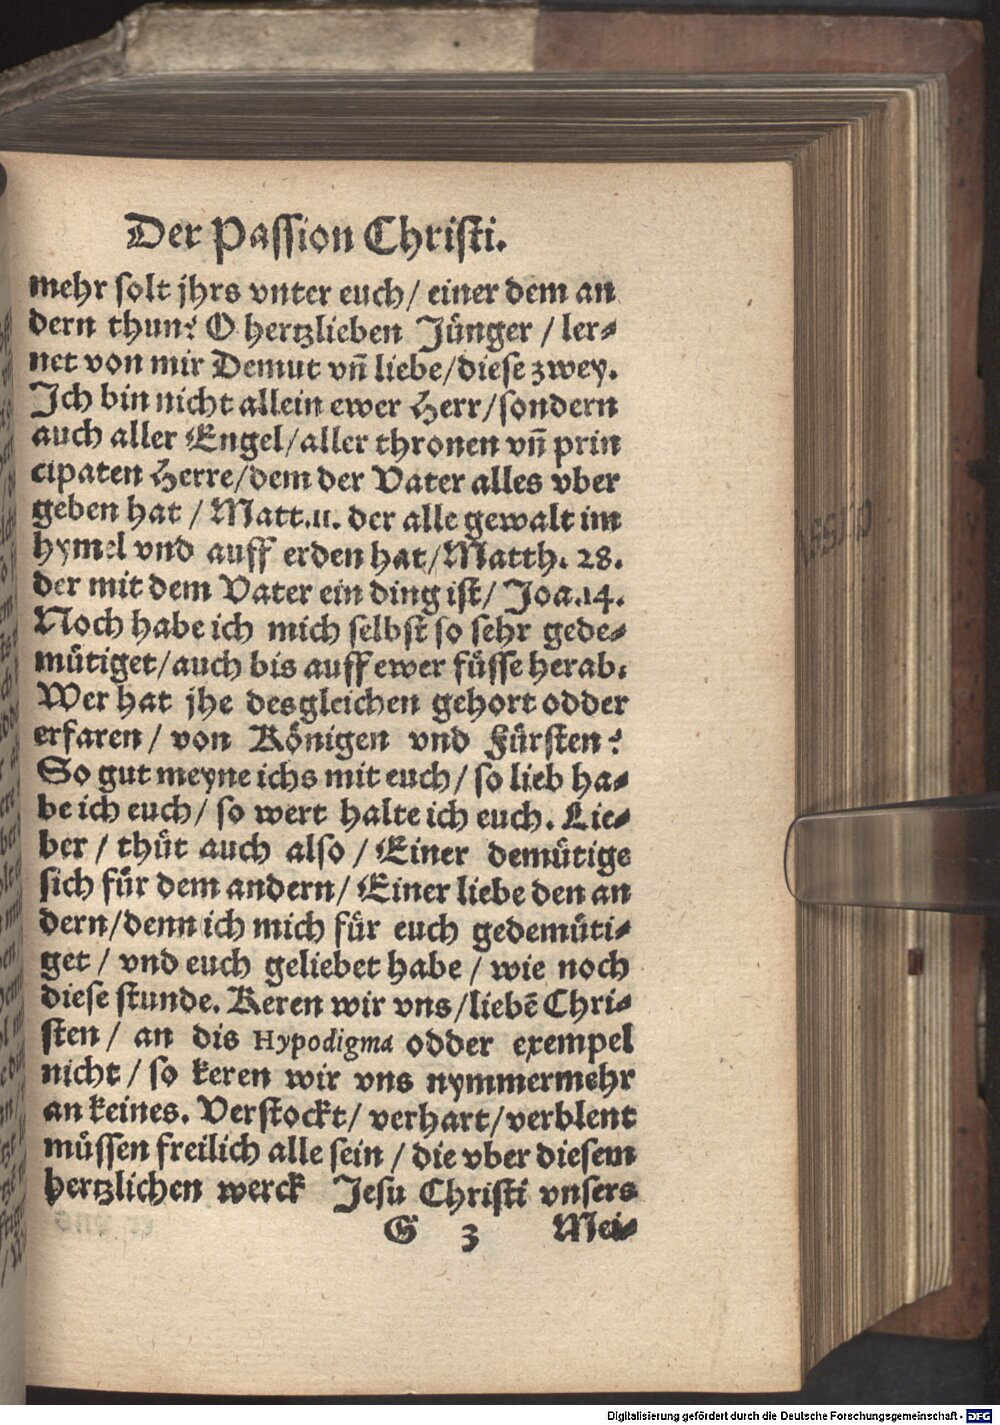 Der Passion Christi.
mehr solt jhrs vnter euch / einer dem an
dern thun? O hertzlieben Jünger / ler-
net von mir Demut vñ liebe / diese zwey.
Ich bin nicht allein ewer Herr / sondern
auch aller Engel / aller thronen vñ prin
cipaten Herre / dem der Vater alles vber
geben hat / Matt.11. der alle gewalt im
hymel vnd auff erden hat / Matth. 28.
der mit dem Vater ein ding ist / Joa.14.
Noch habe ich mich selbst so sehr gede-
mütiget / auch bis auff ewer füsse herab.
Wer hat jhe desgleichen gehort odder
erfaren / von Königen vnd Fürsten?
So gut meyne ichs mit euch / so lieb ha-
be ich euch / so wert halte ich euch. Lie-
ber / thüt auch also / Einer demütige
sich für dem andern / Einer liebe den an
dern / denn ich mich für euch gedemüti-
get / vnd euch geliebet habe / wie noch
diese stunde. Keren wir vns / liebē Chri-
sten / an dis Hypodigma odder exempel
nicht / so keren wir vns nymmermehr
an keines. Verstockt / verhart / verblent
müssen freilich alle sein / die vber diesem
hertzlichen werck Jesu Christi vnsers
G 3 Mei-
Digitalisierung gefördert durch die Deutsche Forschungsgemeinschaft - DFG